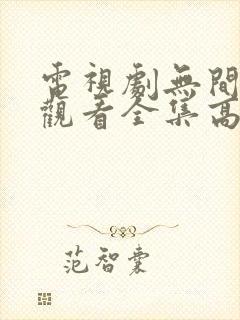 電視劇無間
觀看全集高
范智囊